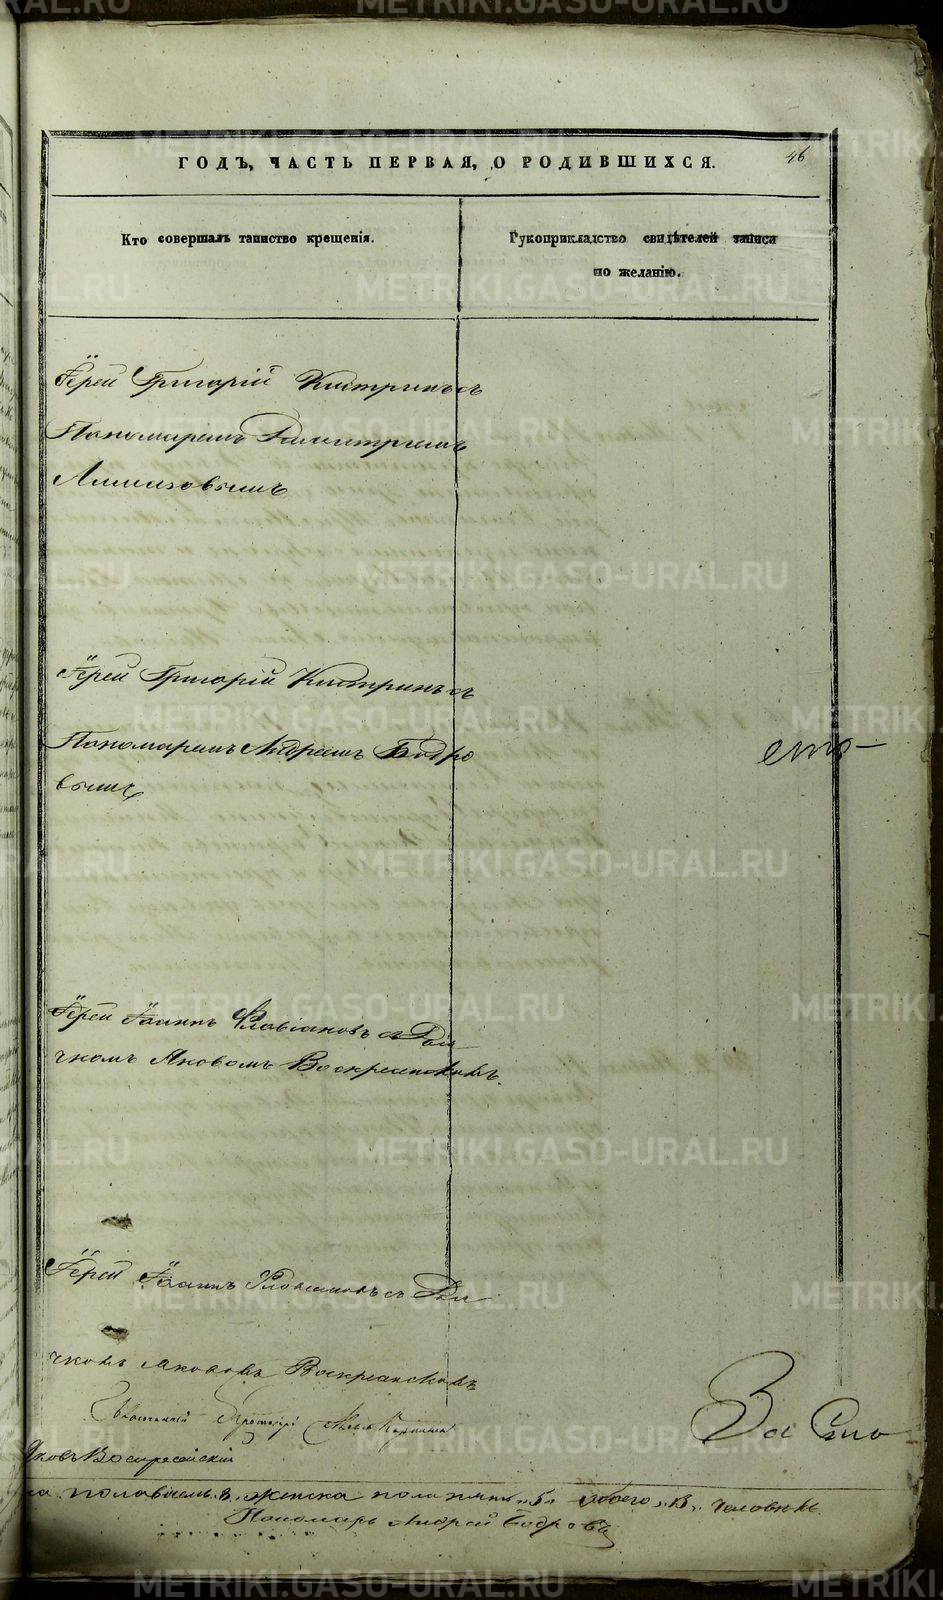 46
ГОДЪ, ЧАСТЬ ПЕРВАЯ, О РОДИВШИХСЯ.
Кто совершалъ таинство крещенія.
Рукоприкладство свидѣтелей записи
по желанію.
Іерей Григорій Кистринъ съ
Пономаремъ Димитріемъ
Іерей Григорій Кистринъ съ
Пономаремъ Андреемъ Бодро
вымъ
Іерей Іоаннъ Флавіановъ съ Дья
чкомъ Яковомъ Воскресенскимъ.
Іерей Іоаннъ Флавіановъ съ Дья
чкомъ Яковомъ Воскресенскимъ
Яковъ Воскресенскій
женска пола пять 5. обоего 13. человѣкъ
Пономарь Андрей Бодровъ
METRIKI.GASO-URAL.RU